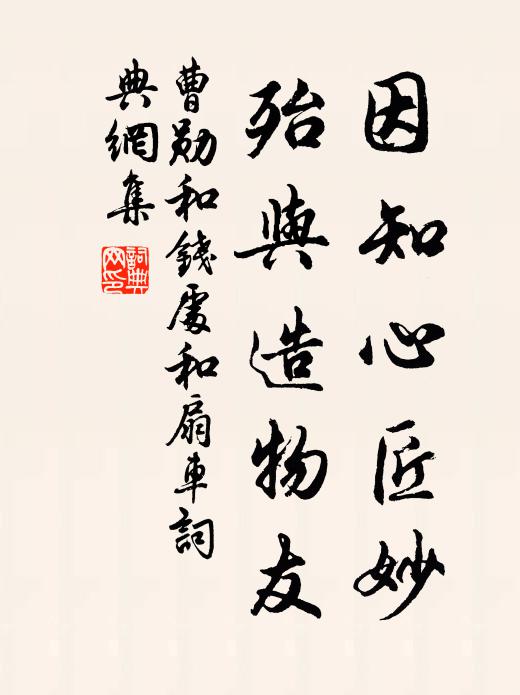 因知心匠妙
殆與造物友
曹勛和錢處和扇車詞
典網集
詞典
网印